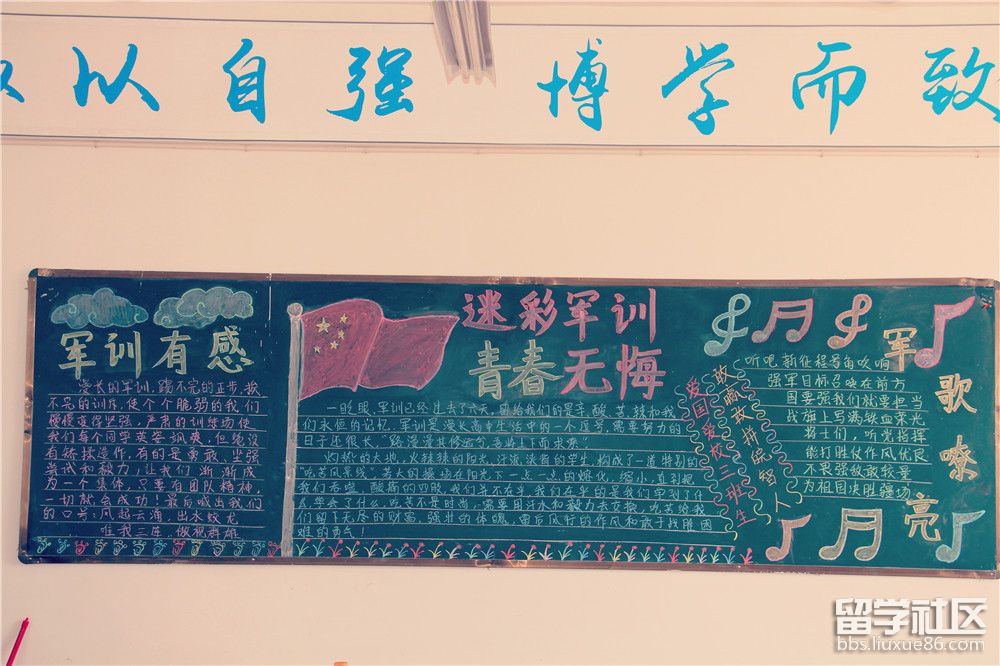 以自强 博学而致
军训有感
漫长的军训,踢不完的正步,挨
不完的训斥,使个个脆弱的我们
慢慢变得坚强,严肃的训练场使
我们每个同学英姿飒爽,但绝没
有矫揉造作,有的是勇敢,坚强
尝试和毅力,让我们渐渐成
为一个集体,只要有团队精神,
一切就会成功!最后喊出我们
的口号:风起云涌,出水蛟龙
唯我三连,傲视群雄
迷彩军训
青春无悔
一眨眼,军训已经过去了六天,留给我们的是辛酸,苦辣和我
们永恒的记忆,军训是漫长高专生活中的一个逗号,需要努力的
日子还很长,"路漫漫其修远兮,吾将上下而求索"
灼热的大地,火辣辣的阳光,汗流浃背的学生,构成了一道特别的
我们吞噬,酸斯的四肢,我们并不在乎,我们在乎的是我们学到了什
们留下了无尽的财富,强壮的体魄,雷厉风行的作风和敢于找胜困
难的勇气!
爱国爱校三班生
敢闯敢拼统智人
军歌嘹亮
听吧 新征程号角吹响
强军目标召唤在前方
国要强我们就要担当
战旗上写满铁血荣光
将士们,听党指挥
能打胜仗作风优良
不畏强敌敢较量
为祖国决胜疆场
留学社区
bbs.liuxue86.com